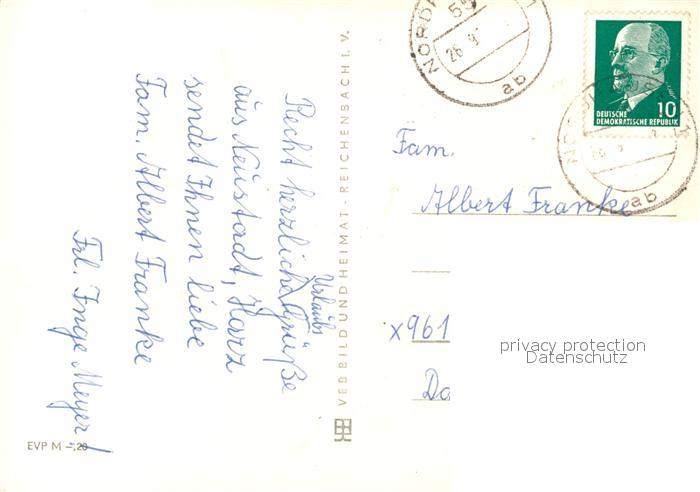 Recht herzliche Urlaubs
grüße
aus Neustadt, Harz
sendet Ihnen liebe
Fam. Albert Franke
Frl. Inge Meyer!
EVP M -,20
VEB BILD UND HEIMAT · REICHENBACH I. V.
26.9.
ab
10
DEUTSCHE
DEMOKRATISCHE REPUBLIK
26.
ab
Fam.
Albert Franke
x961
Do
privacy protection
Datenschutz